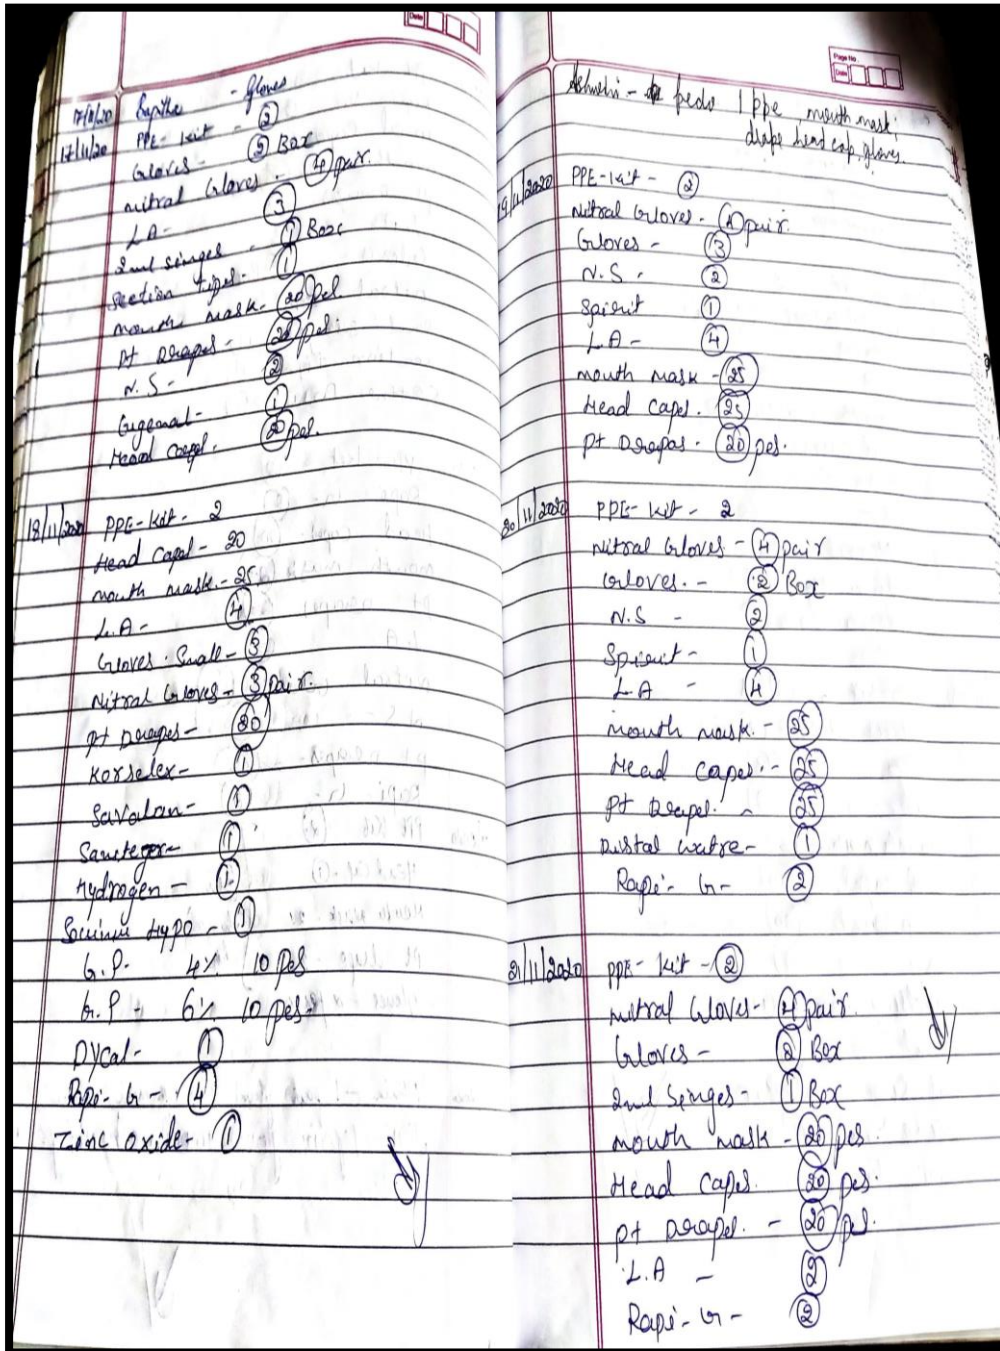 Date
17/11/20 - Gloves
17/11/20 PPE-Kit - 2
Gloves - 2 Box
Nitral Gloves - 4 pair.
L A - 3
2ml singes - 1 Box
Section tipes - 1
mouth mask - 20 pes.
pt Drapes - 20 pes.
N.S - 2
- 1
Head Capes - 20 pes.
18/11/2020 PPE-Kit - 2
Head Capes - 20
mouth mask - 25
L.A - 4
Gloves. Small -
Nitral Gloves - 3 pair.
pt Drapes - 20
Korselex - 1
Savalan - 1
- 1
Hydrogen - 1
Hypo - 1
G.P. 4% 10 pes
G.P 6% 10 pes.
Dycal - 1
Rapi - G - 4
Zinc Oxide - 1
Page No.
Date
- pedo 1 ppe mouth mask,
drape head cap, gloves.
19/11/2020 PPE-Kit - 2
Nitral Gloves - 4 pair.
Gloves - 3
N.S - 2
Spirit 1
L.A - 4
mouth mask - 25
Head Capes. 25
pt Drapes - 20 pes.
20/11/2020 PPE-Kit - 2
Nitral Gloves - 4 pair
Gloves. - 2 Box
N.S - 2
Spirit - 1
L A - 4
mouth mask. - 25
Head Capes. - 25
pt Drapes. - 25
Distal watre - 1
Rapi - G - 2
21/11/2020 PPE-Kit - 2
Nitral Gloves - 4 pair.
Gloves - 2 Box
2ml Singes - 1 Box
mouth mask - 20 pes.
Head Capes. 20 pes.
pt Drapes. - 20 pes.
L.A - 2
Rapi - G - 2